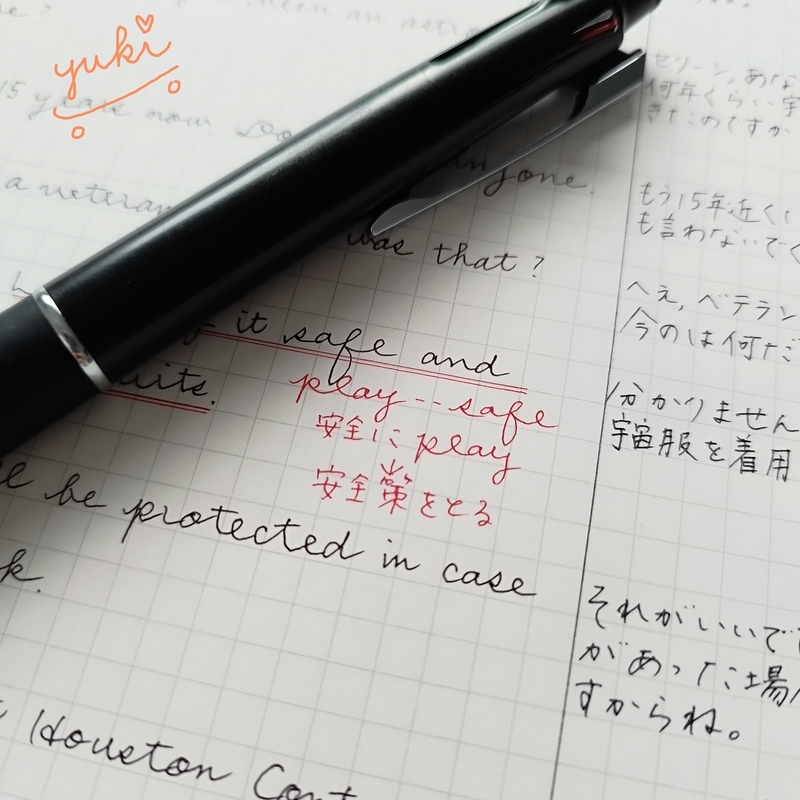 yuki
15 years now.
anyone.
a veteran
was that?
it safe and
suits.
play--safe
安全に play
↓
安全策をとる
be protected in case
k.
Houston Cont
セリーン,あな
何年くらい宇
きたのですか
もう15年近く
も言わないでく
へえ,ベテラン
今のは何だ
分かりません
宇宙服を着用
それがいいで
があった場
すからね。